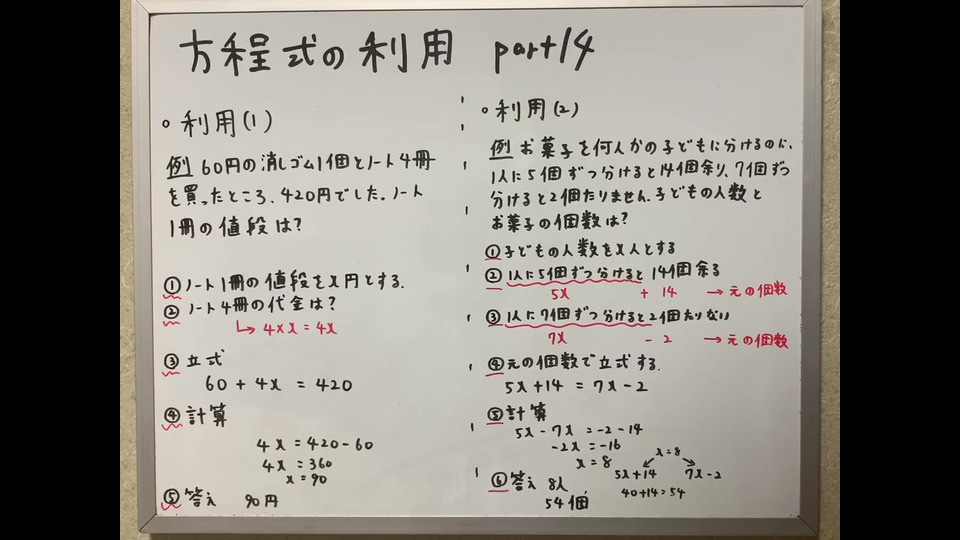 方程式の利用 part14
○利用(1)
例 60円の消しゴム1個とノート4冊
を買ったところ、420円でした。ノート
1冊の値段は?
① ノート1冊の値段をx円とする.
② ノート4冊の代金は?
↳ 4×x = 4x
③ 立式
60 + 4x = 420
④ 計算
4x = 420-60
4x = 360
x = 90
⑤ 答え 90円
○利用(2)
例 お菓子を何人かの子どもに分けるのに、
1人に5個ずつ分けると14個余り、7個ずつ
分けると2個たりません.子どもの人数と
お菓子の個数は?
① 子どもの人数をx人とする
② 1人に5個ずつ分けると14個余る
5x + 14 → 元の個数
③ 1人に7個ずつ分けると2個たりない
7x - 2 → 元の個数
④ 元の個数で立式する.
5x+14 = 7x-2
⑤ 計算
5x-7x = -2-14
-2x = -16
x = 8
⑥ 答え 8人
54個
x=8
5x+14 7x-2
40+14=54